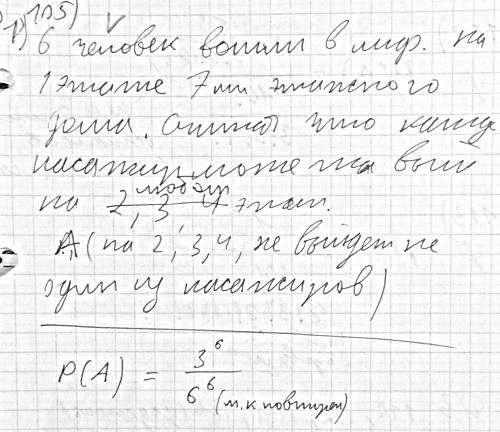 р) 105)
6 человек вошли в лиф. на
1 этаже 7ми этажного
дома. Считая что кажд
пасажир может на вый
любом
на 2, 3, 4 этаж.
A (на 2, 3, 4, не выйдет не
один из пасажиров)
P(A) = 3^6 / 6^6 (т.к повторен)